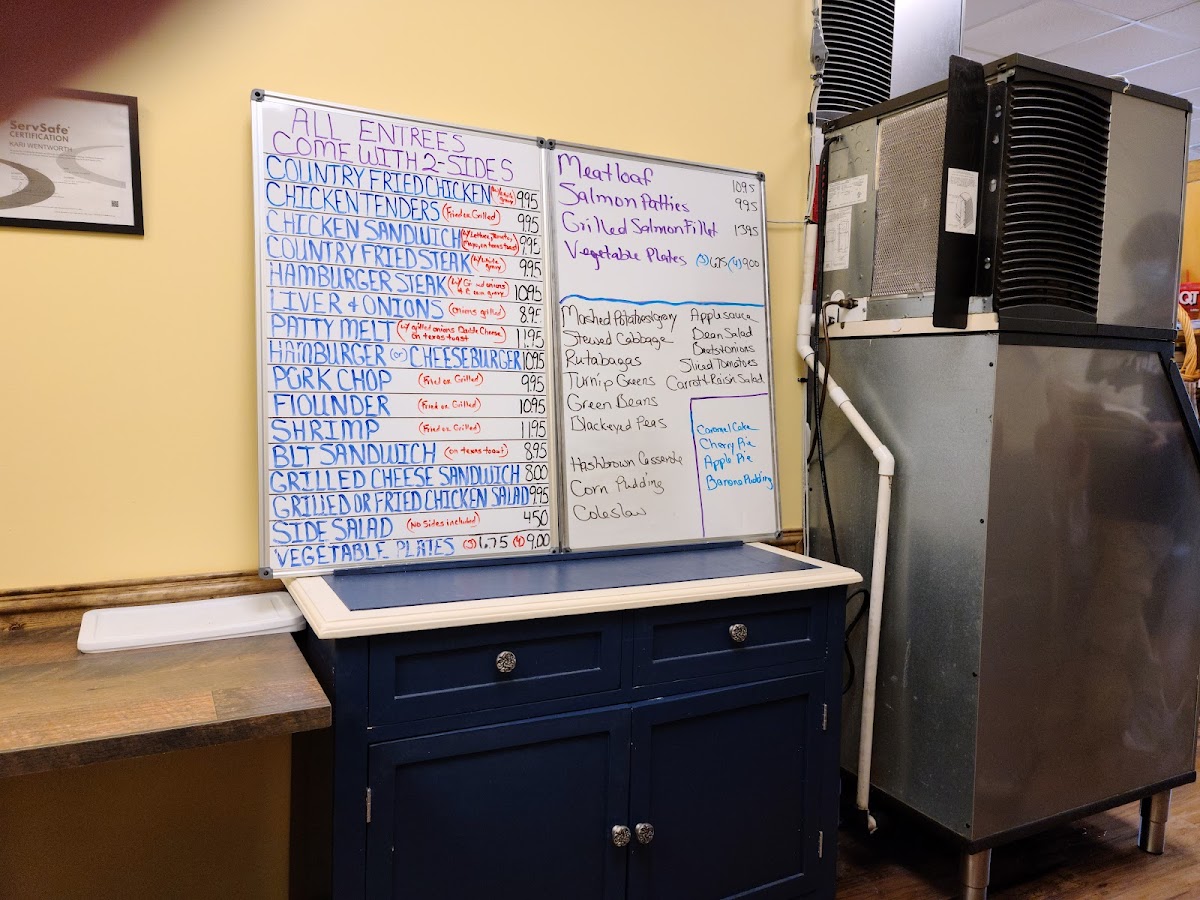 ServSafe®
CERTIFICATION
KARI WENTWORTH
ALL ENTREES
COME WITH 2-SIDES
COUNTRY FRIED CHICKEN 9.95
CHICKEN TENDERS (Fried or Grilled) 9.95
CHICKEN SANDWICH (w/ Lettuce, Tomato, Mayo, on texas toast) 9.95
COUNTRY FRIED STEAK (w/ white gravy) 9.95
HAMBURGER STEAK 10.95
LIVER & ONIONS (onions grilled) 8.95
PATTY MELT (w/ grilled onions Double Cheese, on texas toast) 11.95
HAMBURGER (or) CHEESEBURGER 10.95
PORK CHOP (Fried or Grilled) 9.95
FlOUNDER (Fried or Grilled) 10.95
SHRIMP (Fried or Grilled) 11.95
BLT SANDWICH (on texas toast) 8.95
GRILLED CHEESE SANDWICH 8.00
GRILLED OR FRIED CHICKEN SALAD 9.95
SIDE SALAD (No Sides included) 4.50
VEGETABLE PLATES (3) 6.75 (4) 9.00
Meatloaf 10.95
Salmon Patties 9.95
Grilled Salmon Fillet 13.95
Vegetable Plates (3) 6.75 (4) 9.00
Mashed Potatoes/gravy
Stewed Cabbage
Rutabagas
Turnip Greens
Green Beans
Blackeyed Peas
Hashbrown Casserole
Corn Pudding
Coleslaw
Applesauce
Bean Salad
Beets & onions
Sliced Tomatoes
Carrot-Raisin Salad
Caramel Cake
Cherry Pie
Apple Pie
Banana Pudding
QT